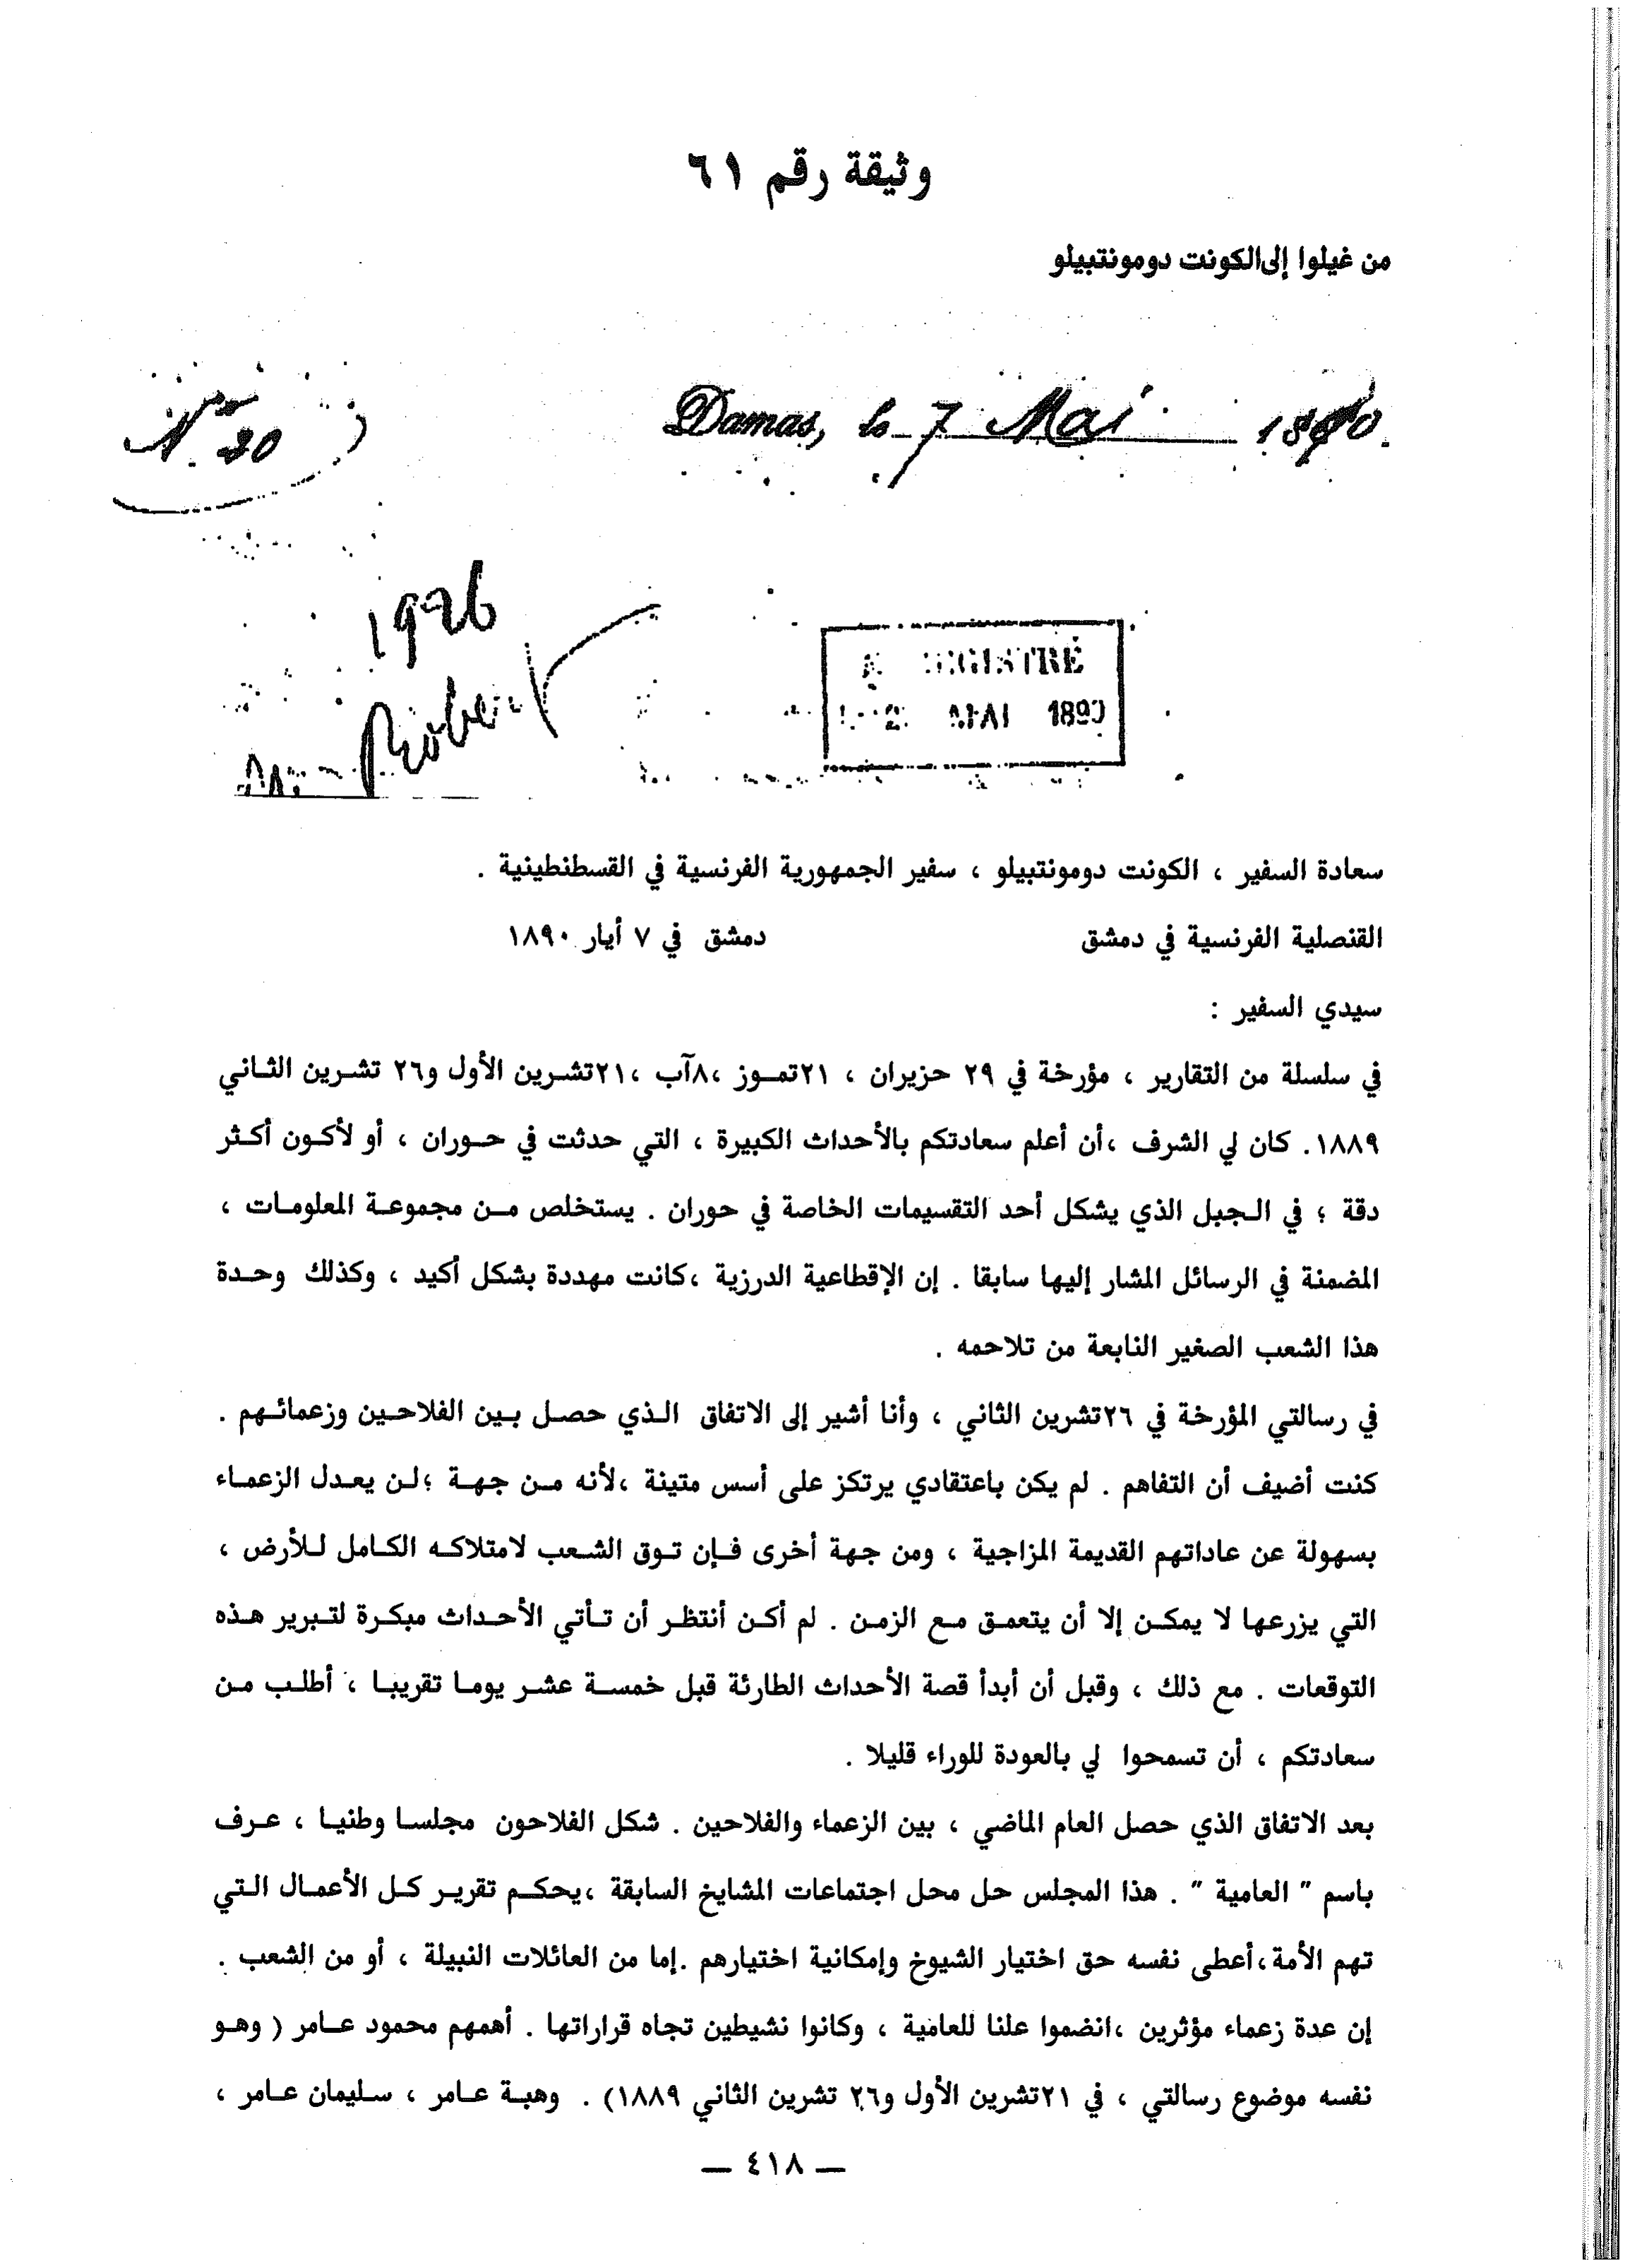 وثيقة رقم ٦١
من غيلوا إلى الكونت دومونتبيلو
N. 30
Damas, le 7 Mai 1890.
1926
REGISTRE
MAI 1890
سعادة السفير ، الكونت دومونتبيلو ، سفير الجمهورية الفرنسية في القسطنطينية .
القنصلية الفرنسية في دمشق دمشق في ٧ أيار ١٨٩٠
سيدي السفير :
في سلسلة من التقارير ، مؤرخة في ٢٩ حزيران ، ٢١تموز ،٨آب ،٢١تشرين الأول و٢٦ تشرين الثاني
١٨٨٩. كان لي الشرف ،أن أعلم سعادتكم بالأحداث الكبيرة ، التي حدثت في حوران ، أو لأكون أكثر
دقة ؛ في الجبل الذي يشكل أحد التقسيمات الخاصة في حوران . يستخلص من مجموعة المعلومات ،
المضمنة في الرسائل المشار إليها سابقا . إن الإقطاعية الدرزية ،كانت مهددة بشكل أكيد ، وكذلك وحدة
هذا الشعب الصغير النابعة من تلاحمه .
في رسالتي المؤرخة في ٢٦تشرين الثاني ، وأنا أشير إلى الاتفاق الذي حصل بين الفلاحين وزعمائهم .
كنت أضيف أن التفاهم . لم يكن باعتقادي يرتكز على أسس متينة ،لأنه من جهة ؛لن يعدل الزعماء
بسهولة عن عاداتهم القديمة المزاجية ، ومن جهة أخرى فإن توق الشعب لامتلاكه الكامل للأرض ،
التي يزرعها لا يمكن إلا أن يتعمق مع الزمن . لم أكن أنتظر أن تأتي الأحداث مبكرة لتبرير هذه
التوقعات . مع ذلك ، وقبل أن أبدأ قصة الأحداث الطارئة قبل خمسة عشر يوما تقريبا ، أطلب من
سعادتكم ، أن تسمحوا لي بالعودة للوراء قليلا .
بعد الاتفاق الذي حصل العام الماضي ، بين الزعماء والفلاحين . شكل الفلاحون مجلسا وطنيا ، عرف
باسم " العامية " . هذا المجلس حل محل اجتماعات المشايخ السابقة ،يحكم تقرير كل الأعمال التي
تهم الأمة،أعطى نفسه حق اختيار الشيوخ وإمكانية اختيارهم .إما من العائلات النبيلة ، أو من الشعب .
إن عدة زعماء مؤثرين ،انضموا علنا للعامية ، وكانوا نشيطين تجاه قراراتها . أهمهم محمود عامر ( وهو
نفسه موضوع رسالتي ، في ٢١تشرين الأول و٢٦ تشرين الثاني ١٨٨٩) . وهبة عامر ، سليمان عامر ،
— ٤١٨ —